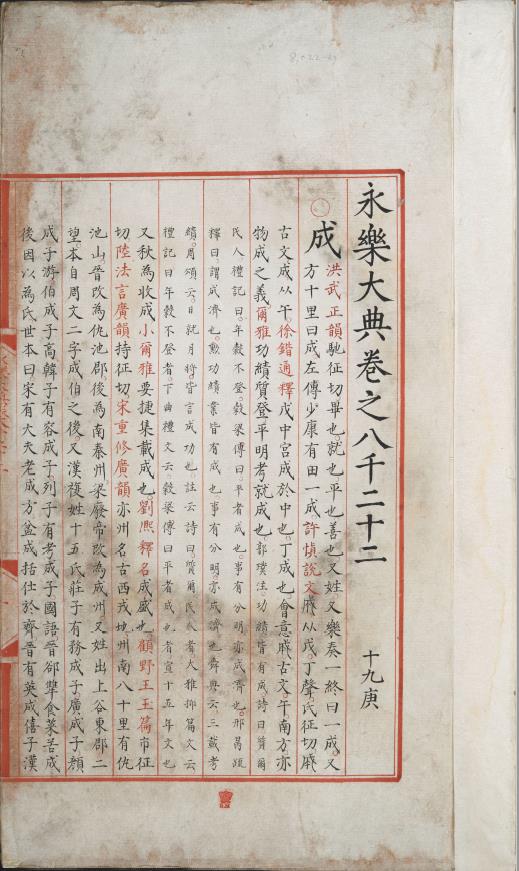 永樂大典卷之八千二十二 十九庚
成 洪武正韻馳征切畢也就也平也善也又姓又樂奏一終曰一成又
方十里曰成左傳少康有田一成許慎說文戚从戊丁聲氏征切戚
古文成从午徐鍇通釋戊中宮成於中也丁成也會意戚古文午南方亦
物成之義爾雅功績質登平明考就成也郭璞注功績皆有成詩曰質爾
民人禮記曰年穀不登穀梁傳曰平者成也事有分明亦成濟也邢昺疏
釋曰謂成濟也勲功績業皆有成也事有分明亦成濟也舜典云三載考
績周頌云日就月將皆言成功也註云詩曰質爾民人者大雅抑篇文云
禮記曰年穀不登者下曲禮文云穀梁傳曰平者成也者宣十五年文也
又秋為收成小爾雅要捷集載成也劉熈釋名成盛也顧野王玉篇市征
切陸法言廣韻持征切宋重修廣韻亦州名古西戎地州南八十里有仇
池山晉改為仇池郡後為南秦州梁廢帝改為成州又姓出上谷東郡二
望本自周文二字成伯之後又漢複姓十五氏莊子有務成子廣成子顏
成子游伯成子高韓子有容成子列子有考成子國語晉郤犨食采苦成
後因以為氏世本曰宋有大夫老成方盆成括仕於齊晉有英成僖子漢